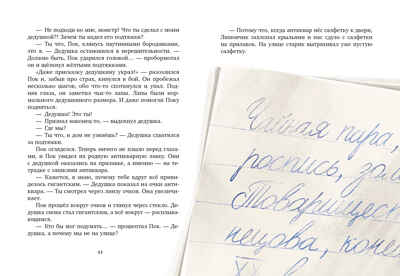 — Не подходи ко мне, монстр! Что ты сделал с моим
дедушкой?! Зачем ты надел его подтяжки?
— Ты что, Пок, клянусь паутинными бородавками,
это я. — Дедушка остановился в нерешительности. —
Должно быть, Пок ударился головой... — пробормотал
он и щёлкнул жёлтыми подтяжками.
«Даже присказку дедушкину украл!» — разозлился
Пок и, забыв про страх, кинулся в бой. Он пробежал
несколько шагов, обо что-то споткнулся и упал. Под-
няв глаза, он заметил чьи-то лапы. Лапы были нор-
мального дедушкиного размера. И даже помогли Поку
подняться.
— Дедушка! Это ты!
— Признал наконец-то, — выдохнул дедушка.
— Где мы?
— Ты что, и дом не узнаёшь? — Дедушка схватился
за подтяжки.
Пок огляделся. Теперь ничего не плыло перед глаза-
ми, и Пок увидел их родную антикварную лавку. Они
с дедушкой находились на прилавке, а именно — на те-
традке с записями антиквара.
— Кажется, я знаю, почему тебе вдруг всё приви-
делось гигантским. — Дедушка показал на очки анти-
квара. — Ты смотрел через линзу очков. Она увеличи-
вает.
Пок прошёл вокруг очков и глянул через стекло. Де-
душка снова стал гигантским, а всё вокруг — расплыва-
ющимся.
— Кто бы мог подумать... — прошептал Пок. — Де-
душка, а почему мы не на улице?
— Потому что, когда антиквар нёс салфетку к двери,
Лимончик захлопал крыльями и нас сдуло с салфетки
на прилавок. На улице старик вытряхивал уже пустую
салфетку.
Чайная пара,
роспись, зол
Товарищест
нецова, коне